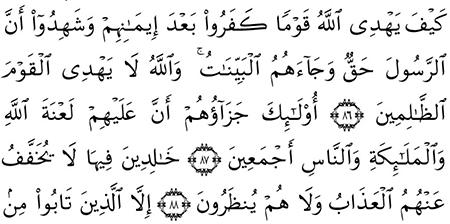 كَيْفَ يَهْدِى ٱللَّهُ قَوْمًا كَفَرُوا۟ بَعْدَ إِيمَـٰنِهِمْ وَشَهِدُوٓا۟ أَنَّ
ٱلرَّسُولَ حَقٌّ وَجَآءَهُمُ ٱلْبَيِّنَـٰتُ ۚ وَٱللَّهُ لَا يَهْدِى ٱلْقَوْمَ
ٱلظَّـٰلِمِينَ ﴿٨٦﴾ أُو۟لَـٰٓئِكَ جَزَآؤُهُمْ أَنَّ عَلَيْهِمْ لَعْنَةَ ٱللَّهِ
وَٱلْمَلَـٰٓئِكَةِ وَٱلنَّاسِ أَجْمَعِينَ ﴿٨٧﴾ خَـٰلِدِينَ فِيهَا لَا يُخَفَّفُ
عَنْهُمُ ٱلْعَذَابُ وَلَا هُمْ يُنظَرُونَ ﴿٨٨﴾ إِلَّا ٱلَّذِينَ تَابُوا۟ مِنۢ